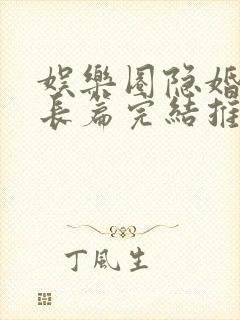 娱樂圈隐婚
長篇完結推
丁風生